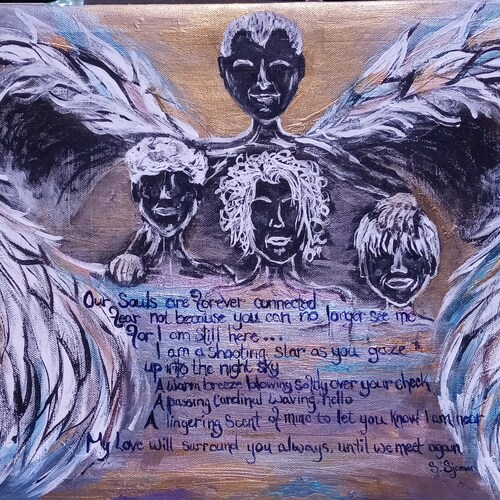 Our Souls are Forever connected
Fear not because you can no longer see me
For I am still here...
I am a shooting star as you gaze
up into the night sky
A warm breeze blowing softly over your cheek
A passing Cardinal waving hello
A lingering scent of mine to let you know I am near
My Love will surround you always, until we meet again
S.